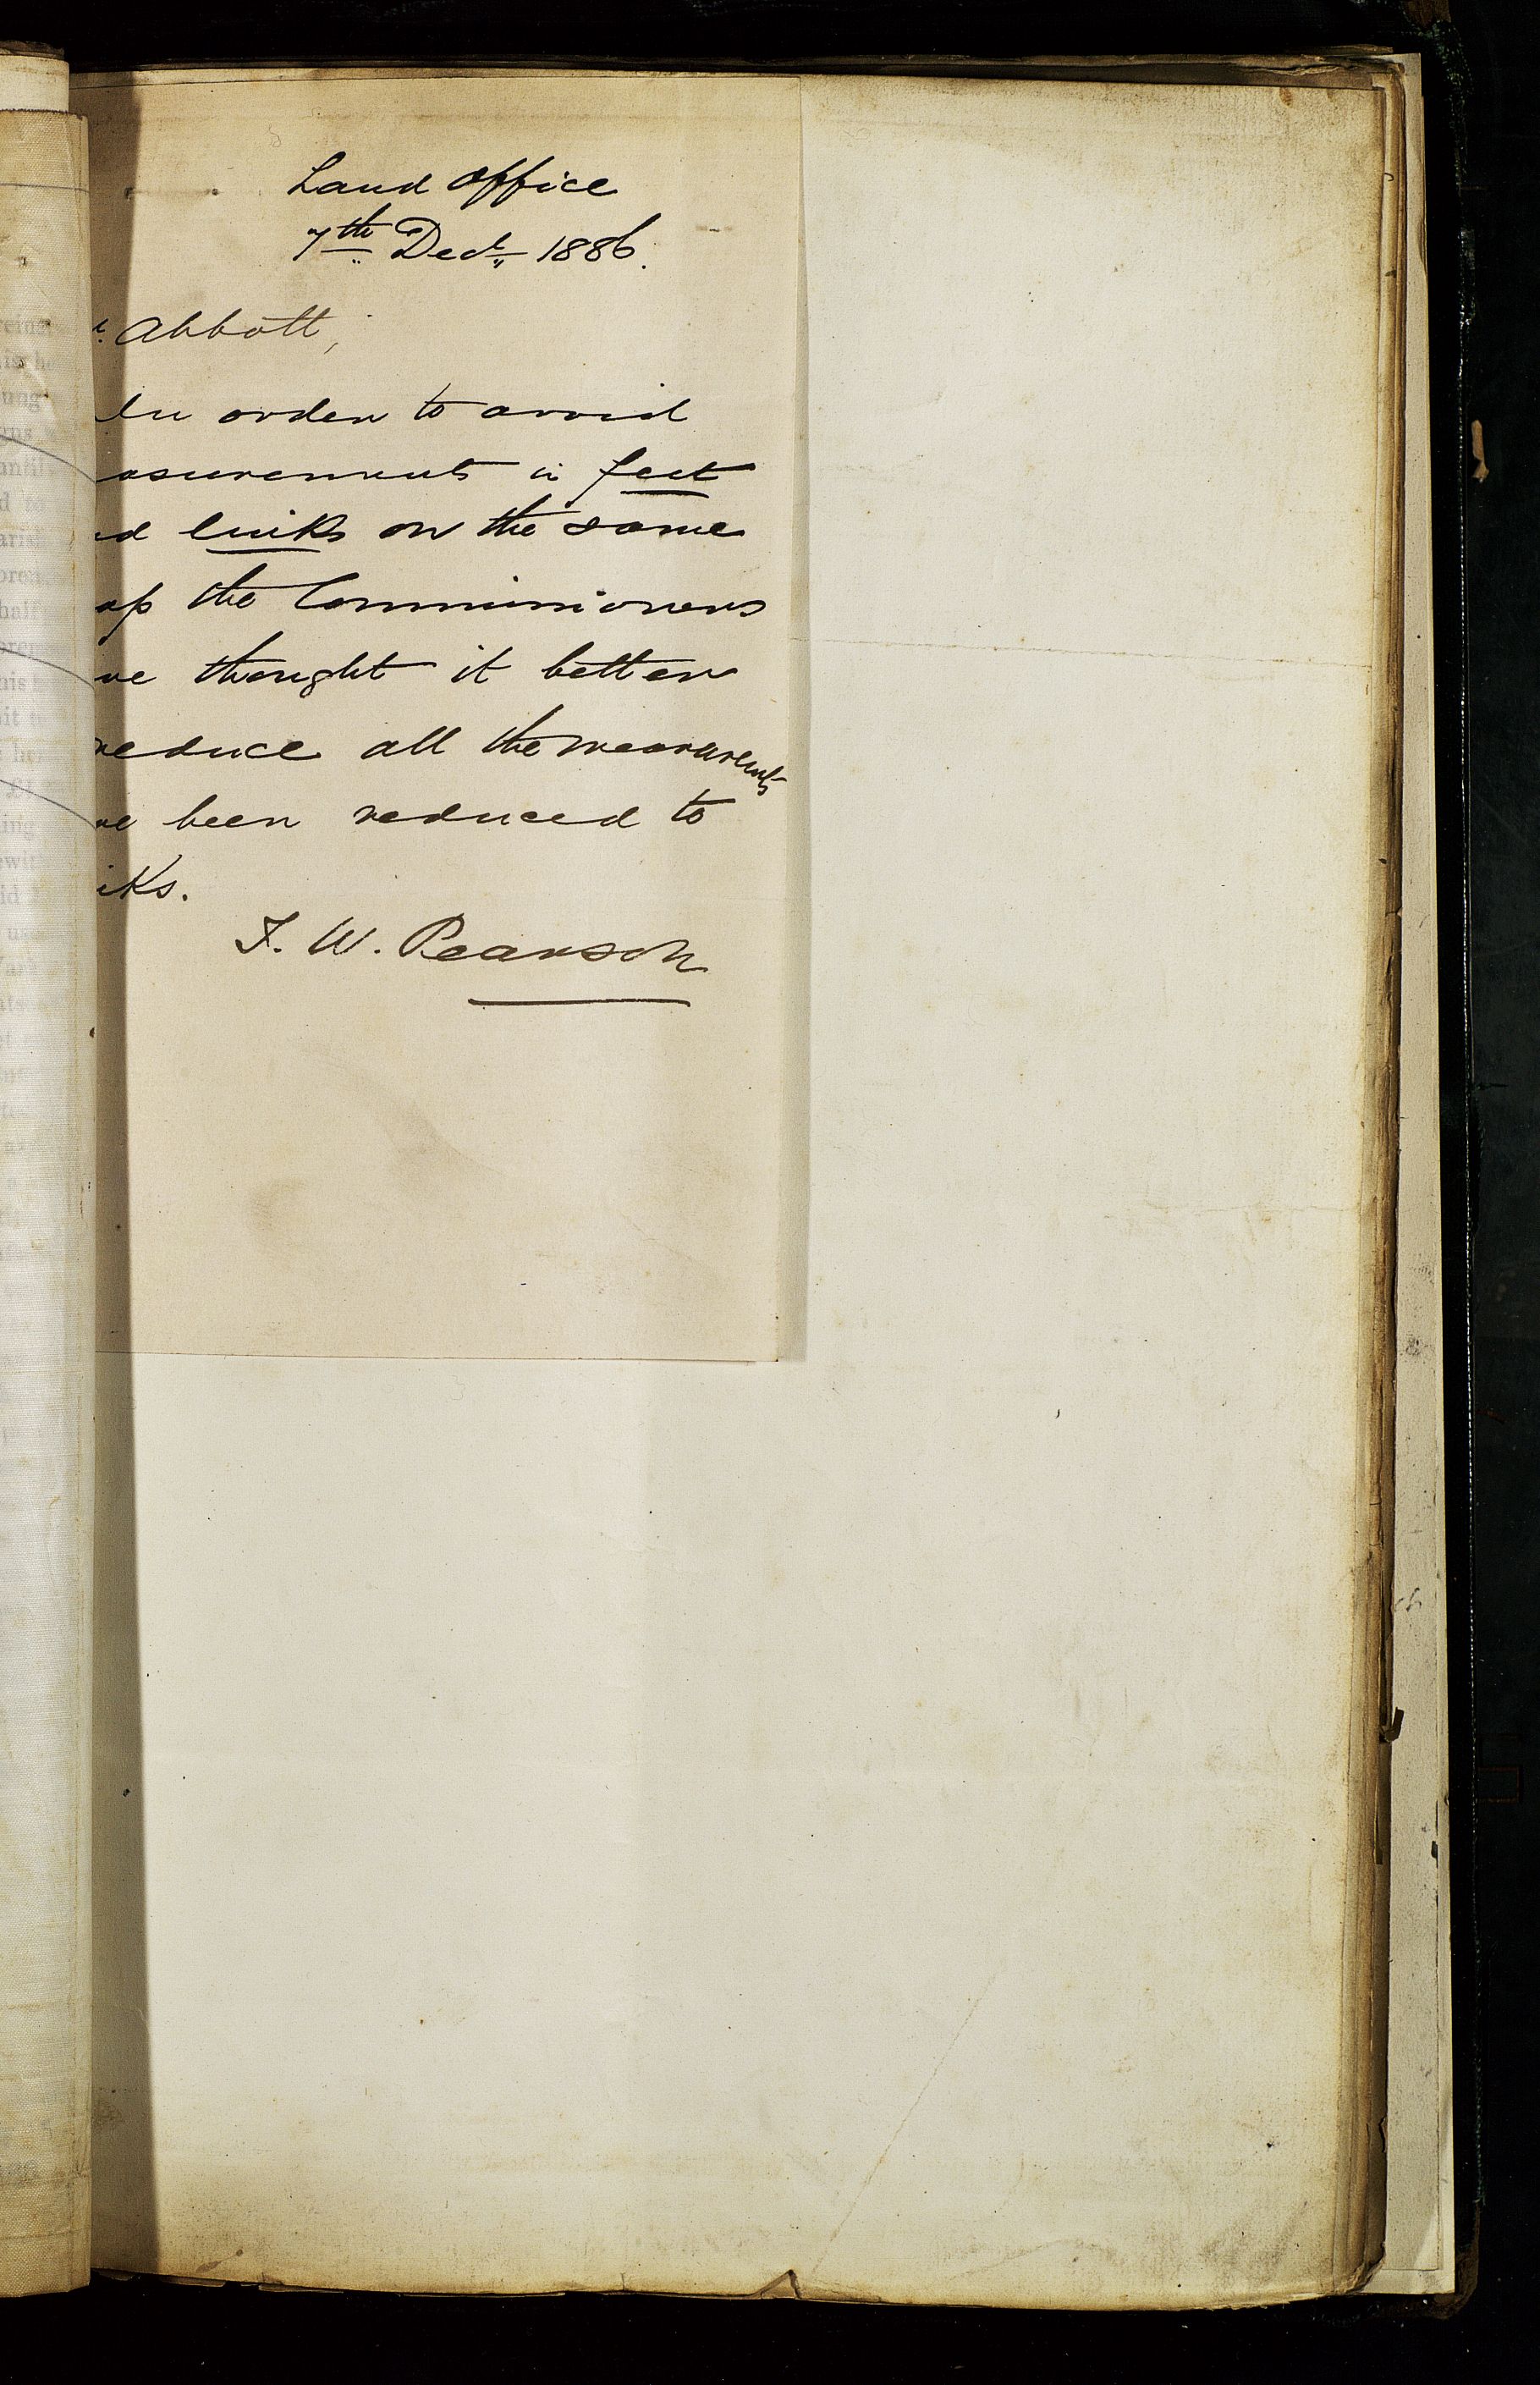 Land Office
7th Decr 1886.
r. Abbott,
In order to avoid
asurements in feet
nd links on the same
ap the Commissioners
ve thought it better
reduce all the measurements
ve been reduced to
nks.
F. W. Pearson